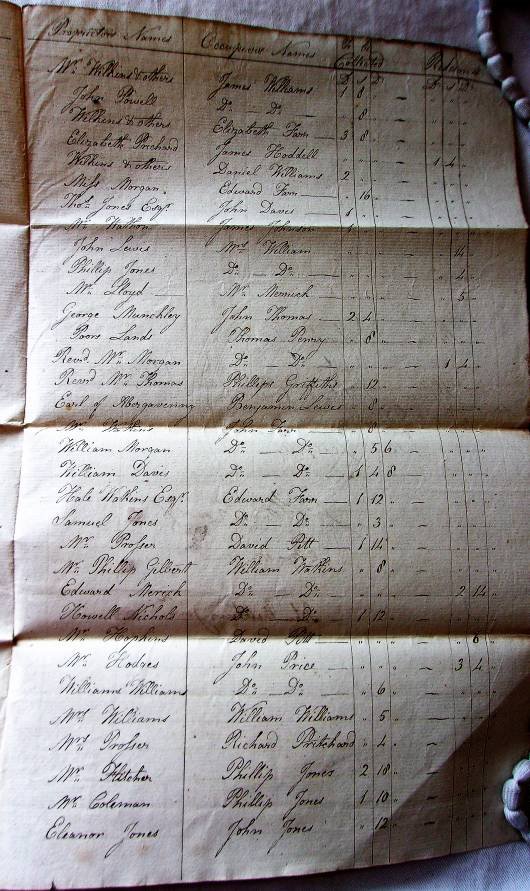 Proprietors Names Occupiers Names To be Collected
Mr. Wilkins & others James Williams 1 8 —
John Powell Do. — Do. — " 8 —
Wilkins & others Elizabeth Farn — 3 8 —
Elizabeth Prichard James Hoddell — 1 4
Wilkins & others Daniel Williams 2
Miss Morgan Edward Farn — " 16
Thos. Jones Esqr. John Davis — 1
Mr. Watkins James Johnson
John Lewis Mrs. William — 14
Phillip Jones Do. — Do. — 4
Mr. Lloyd — Mr. Merrick — 5
George Munckley John Thomas — 2 4
Poors Lands Thomas Penry " 8
Revd. Mr. Morgan Do. — Do. 1 4
Revd. Mr. Thomas Phillips Griffiths " 12
Earl of Abergavenny Benjamin Lewis " 8
Mr. Watkins John Farn — " 8
William Morgan Do. — Do. — " 5 6
William Davis Do. — Do. — 1 4 8
Hale Watkins Esqr. Edward Farn — 1 12
Samuel Jones Do. — Do. — " 3
Mr. Prosser David Pitt — 1 14
Mr. Phillip Gilbert William Watkins " 8
Edward Merick Do. — Do. 2 14
Howell Nichols Do. — Do. — 1 12
Mr. Hopkins David Pitt — 6
Mr. Hodges John Price — 3 4
Williams Williams Do. — Do. — " 6
Mrs. Williams William Williams " 5
Mrs. Prosser Richard Pritchard " 4
Mr. Fletcher Phillip Jones 2 18
Mr. Coleman Phillip Jones 1 10
Eleanor Jones John Jones " 12